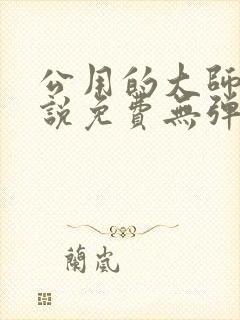 公用的大師
說免費無彈
蘭嵐